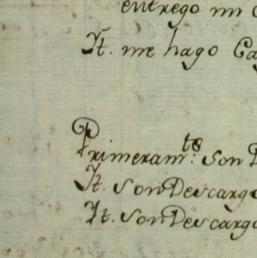 entrego mi
Yt. me hago
Primeram.te son
Yt. son Descargo
Yt. son Descargo